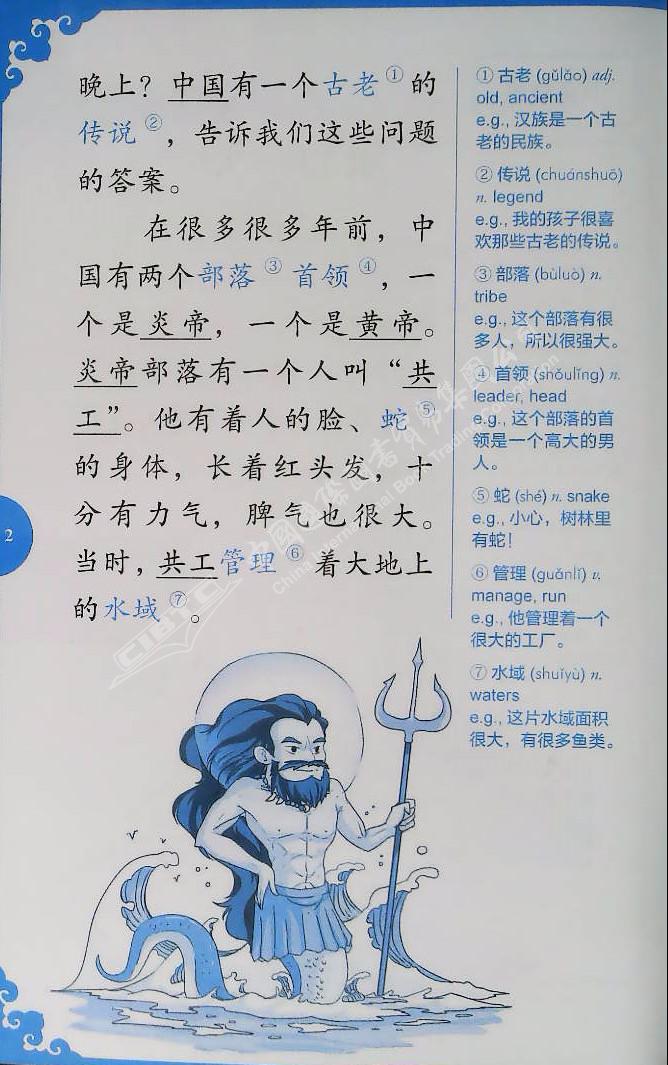 晚上？中国有一个古老①的
传说②，告诉我们这些问题
的答案。
在很多很多年前，中
国有两个部落③首领④，一
个是炎帝，一个是黄帝。
炎帝部落有一个人叫“共
工”。他有着人的脸、蛇⑤
的身体，长着红头发，十
分有力气，脾气也很大。
当时，共工管理⑥着大地上
的水域⑦。
① 古老 (gǔlǎo) adj.
old, ancient
e.g., 汉族是一个古
老的民族。
② 传说 (chuánshuō)
n. legend
e.g., 我的孩子很喜
欢那些古老的传说。
③ 部落 (bùluò) n.
tribe
e.g., 这个部落有很
多人，所以很强大。
④ 首领 (shǒulǐng) n.
leader, head
e.g., 这个部落的首
领是一个高大的男
人。
⑤ 蛇 (shé) n. snake
e.g., 小心，树林里
有蛇！
⑥ 管理 (guǎnlǐ) v.
manage, run
e.g., 他管理着一个
很大的工厂。
⑦ 水域 (shuǐyù) n.
waters
e.g., 这片水域面积
很大，有很多鱼类。
2
CIBTC
中國國際圖書貿易集團公司
China International Book Trading Corporation